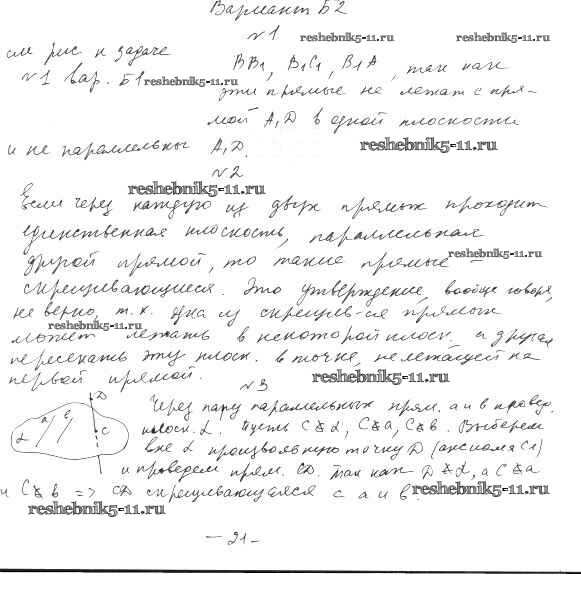 Вариант Б2
№1 reshebnik5-11.ru reshebnik5-11.ru
см рис к задаче BB₁, B₁C₁, B₁A, так как
№1 вар. Б1 reshebnik5-11.ru эти прямые не лежат с пря-
мой A₁D в одной плоскости
и не параллельны A₁D. reshebnik5-11.ru
№2
reshebnik5-11.ru
Если через каждую из двух прямых проходит
единственная плоскость, параллельная
другой прямой, то такие прямые – reshebnik5-11.ru
скрещивающиеся. Это утверждение, вообще говоря,
не верно, т.к. одна из скрещив-ся прямых
reshebnik5-11.ru
может лежать в некоторой плоск., а другая
пересекать эту плоск. в точке, не лежащей на
первой прямой. reshebnik5-11.ru
№3
Через пару параллельных прям. a и b провед.
плоск. α. Пусть C ∈ α, C ∉ a, C ∉ b. Выберем
вне α произвольную точку D (аксиома C1)
и проведем прям. CD. Так как D ∉ α, а C ∉ a
и C ∉ b => CD скрещивающаяся с a и b. reshebnik5-11.ru
reshebnik5-11.ru
α a b D C
– 21 –